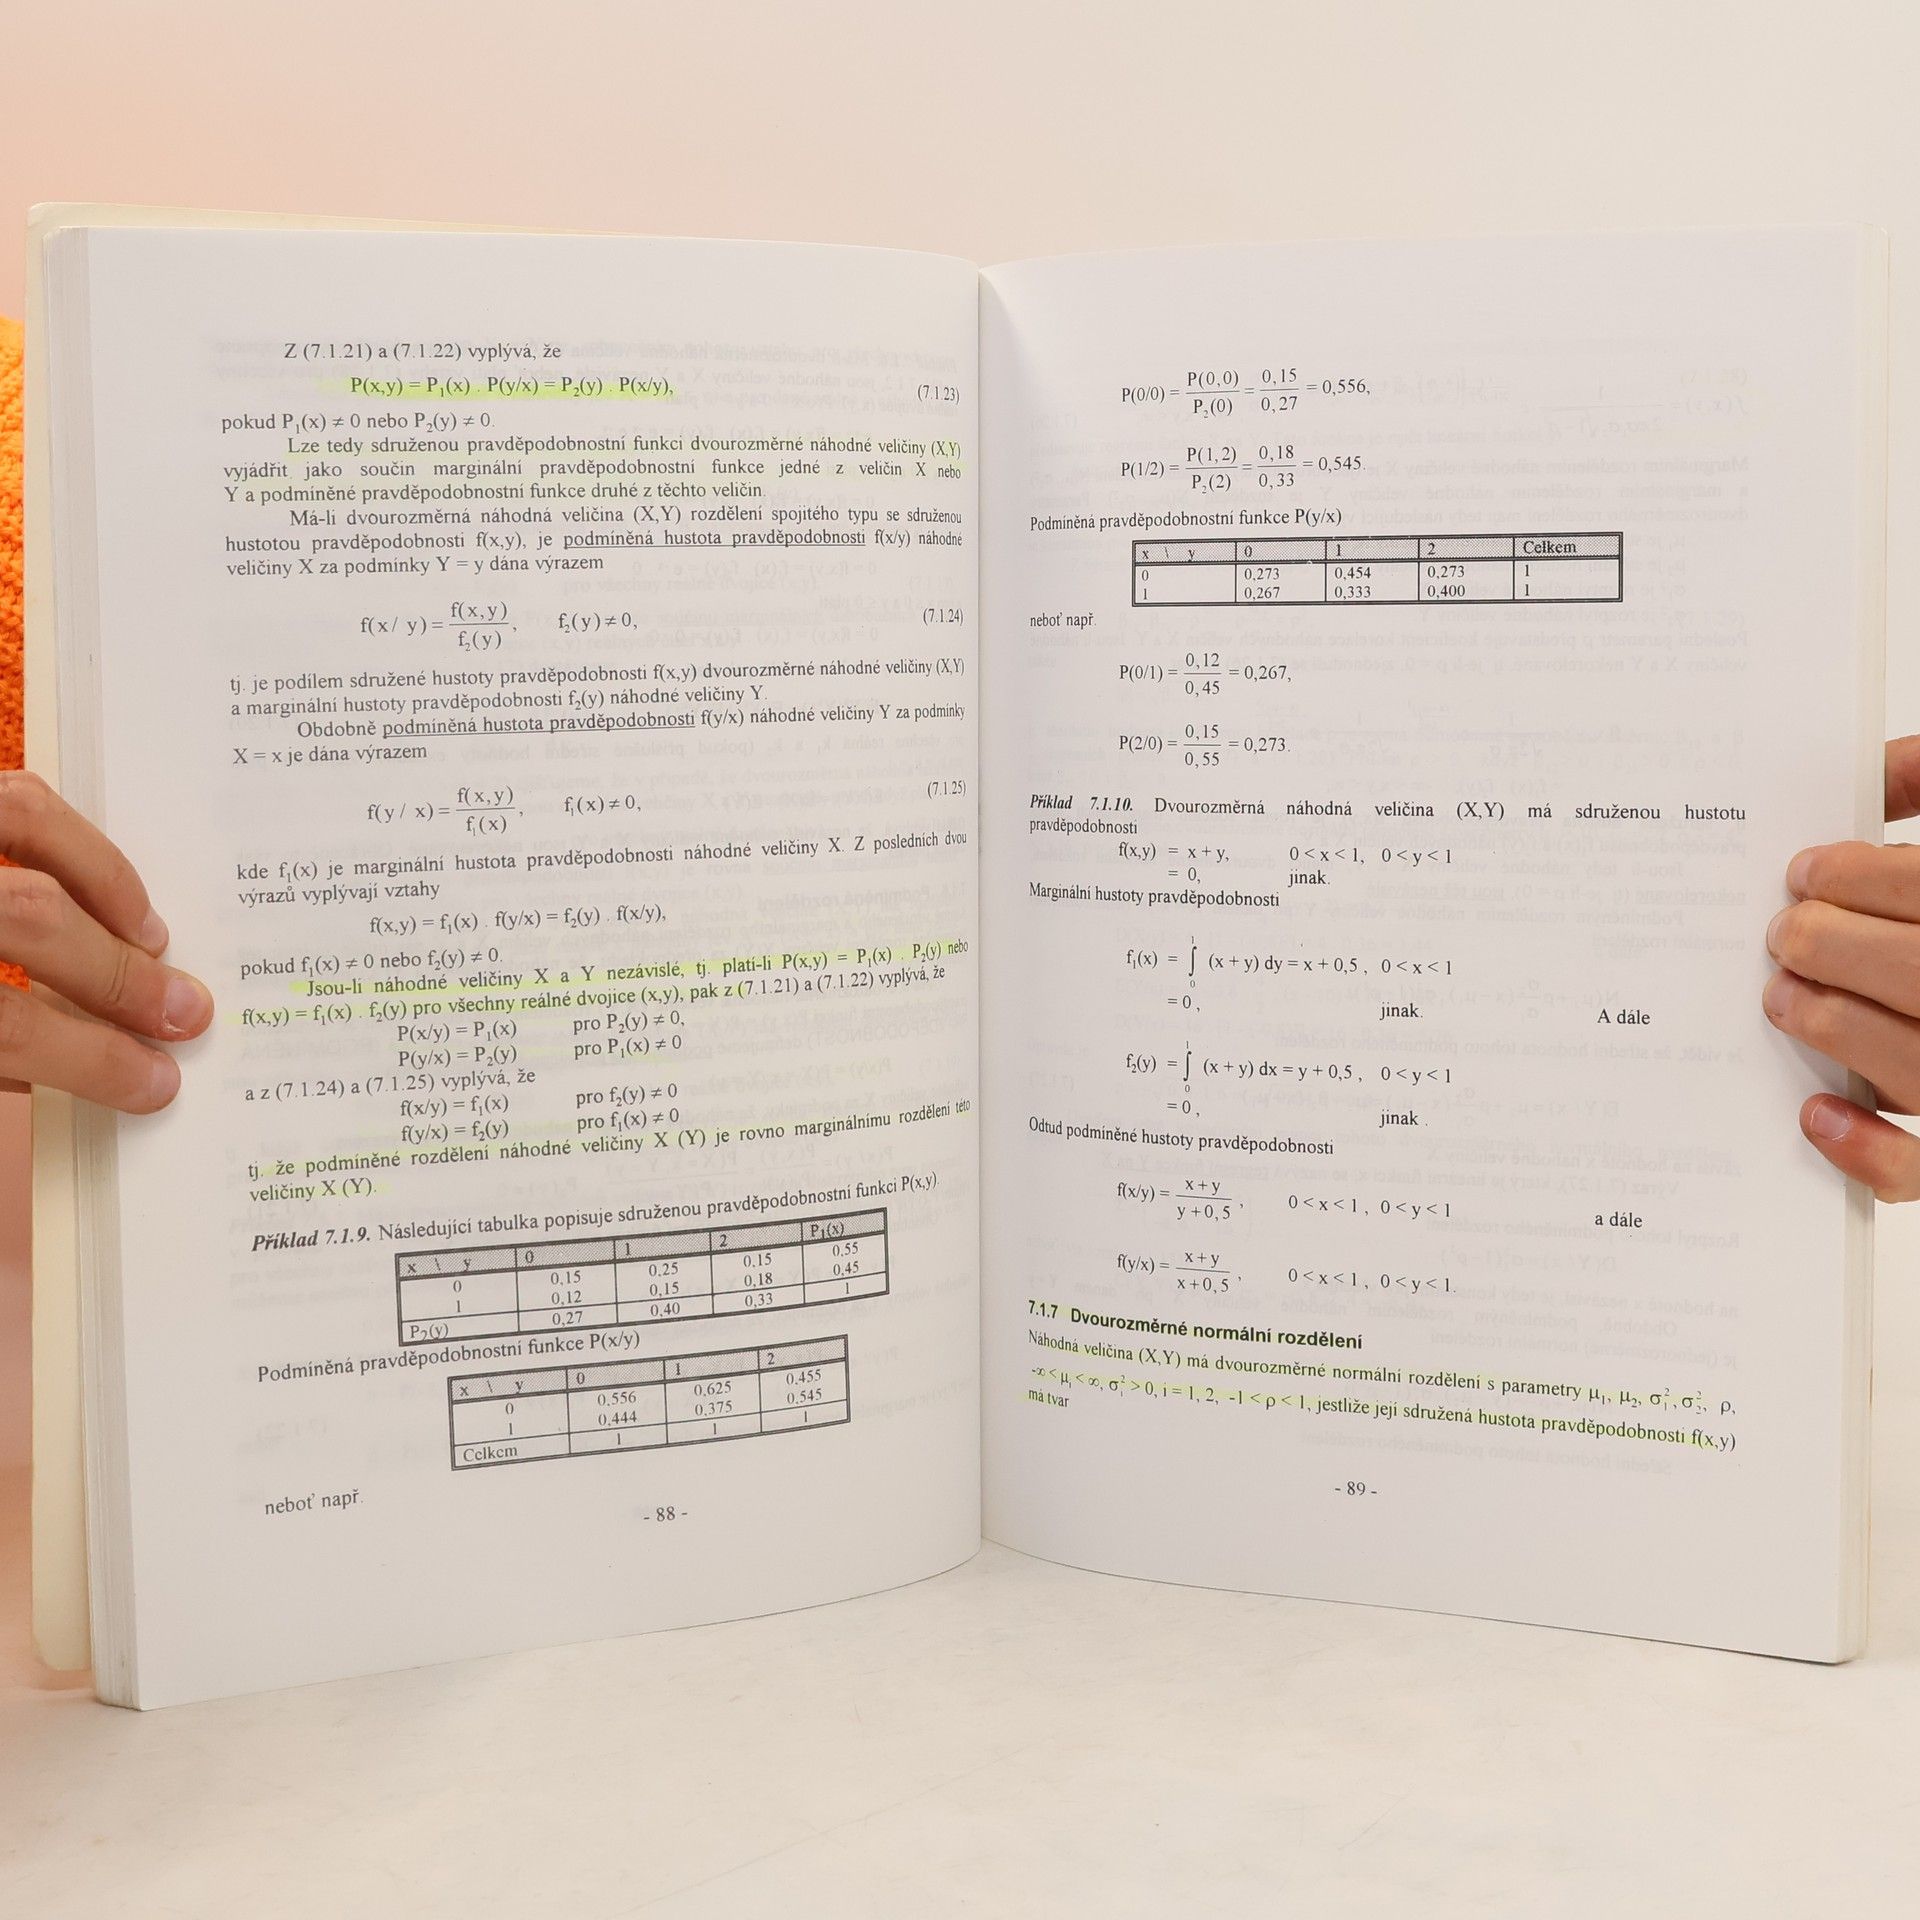 Z (7.1.21) a (7.1.22) vyplývá, že
P(x,y) = P₁(x) . P(y/x) = P₂(y) . P(x/y), (7.1.23)
pokud P₁(x) ≠ 0 nebo P₂(y) ≠ 0.
Lze tedy sdruženou pravděpodobnostní funkci dvourozměrné náhodné veličiny (X,Y)
vyjádřit jako součin marginální pravděpodobnostní funkce jedné z veličin X nebo
Y a podmíněné pravděpodobnostní funkce druhé z těchto veličin.
Má-li dvourozměrná náhodná veličina (X,Y) rozdělení spojitého typu se sdruženou
hustotou pravděpodobnosti f(x,y), je podmíněná hustota pravděpodobnosti f(x/y) náhodné
veličiny X za podmínky Y = y dána výrazem
f(x/ y) = f(x,y) / f₂(y), f₂(y) ≠ 0, (7.1.24)
tj. je podílem sdružené hustoty pravděpodobnosti f(x,y) dvourozměrné náhodné veličiny (X,Y)
a marginální hustoty pravděpodobnosti f₂(y) náhodné veličiny Y.
Obdobně podmíněná hustota pravděpodobnosti f(y/x) náhodné veličiny Y za podmínky
X = x je dána výrazem
f(y / x) = f(x,y) / f₁(x), f₁(x) ≠ 0, (7.1.25)
kde f₁(x) je marginální hustota pravděpodobnosti náhodné veličiny X. Z posledních dvou
výrazů vyplývají vztahy
f(x,y) = f₁(x) . f(y/x) = f₂(y) . f(x/y),
pokud f₁(x) ≠ 0 nebo f₂(y) ≠ 0.
Jsou-li náhodné veličiny X a Y nezávislé, tj. platí-li P(x,y) = P₁(x) . P₂(y) nebo
f(x,y) = f₁(x) . f₂(y) pro všechny reálné dvojice (x,y), pak z (7.1.21) a (7.1.22) vyplývá, že
P(x/y) = P₁(x) pro P₂(y) ≠ 0,
P(y/x) = P₂(y) pro P₁(x) ≠ 0
a z (7.1.24) a (7.1.25) vyplývá, že
f(x/y) = f₁(x) pro f₂(y) ≠ 0
f(y/x) = f₂(y) pro f₁(x) ≠ 0
tj. že podmíněné rozdělení náhodné veličiny X (Y) je rovno marginálnímu rozdělení této
veličiny X (Y).
Příklad 7.1.9. Následující tabulka popisuje sdruženou pravděpodobnostní funkci P(x,y).
x \ y 0 1 2 P₁(x)
0 0,15 0,25 0,15 0,55
1 0,12 0,15 0,18 0,45
P₂(y) 0,27 0,40 0,33 1
Podmíněná pravděpodobnostní funkce P(x/y)
x \ y 0 1 2
0 0,556 0,625 0,455
1 0,444 0,375 0,545
Celkem 1 1 1
neboť např.
- 88 -
P(0/0) = P(0,0) / P₂(0) = 0,15 / 0,27 = 0,556,
P(1/2) = P(1,2) / P₂(2) = 0,18 / 0,33 = 0,545.
Podmíněná pravděpodobnostní funkce P(y/x)
x \ y 0 1 2 Celkem
0 0,273 0,454 0,273 1
1 0,267 0,333 0,400 1
neboť např.
P(0/1) = 0,12 / 0,45 = 0,267,
P(2/0) = 0,15 / 0,55 = 0,273.
Příklad 7.1.10. Dvourozměrná náhodná veličina (X,Y) má sdruženou hustotu
pravděpodobnosti
f(x,y) = x + y, 0 < x < 1, 0 < y < 1
= 0, jinak.
Marginální hustoty pravděpodobnosti
f₁(x) = ∫₀¹ (x + y) dy = x + 0,5 , 0 < x < 1
= 0 , jinak. A dále
f₂(y) = ∫₀¹ (x + y) dx = y + 0,5 , 0 < y < 1
= 0 , jinak .
Odtud podmíněné hustoty pravděpodobnosti
f(x/y) = x + y / y + 0,5 , 0 < x < 1 , 0 < y < 1 a dále
f(y/x) = x + y / x + 0,5 , 0 < x < 1 , 0 < y < 1.
7.1.7 Dvourozměrné normální rozdělení
Náhodná veličina (X,Y) má dvourozměrné normální rozdělení s parametry μ₁, μ₂, σ₁², σ₂², ρ,
-∞ < μᵢ < ∞, σᵢ² > 0, i = 1, 2, -1 < ρ < 1, jestliže její sdružená hustota pravděpodobnosti f(x,y)
má tvar
- 89 -